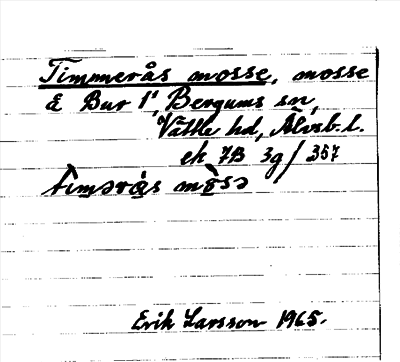 Timmerås mosse, mosse
å Bur 1¹, Bergums sn,
Vättle hd, Älvsb. l.
ek 7B 3g/357
mosse
Erik Larsson 1965.